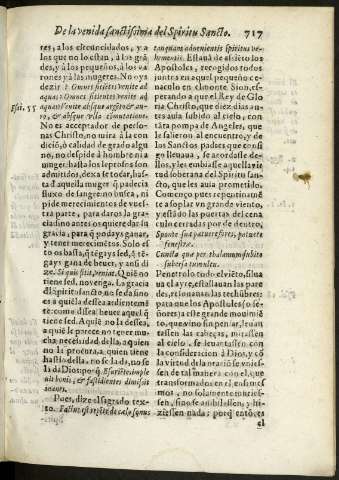 De la venida sanctissima del Spiritu Sancto. 717
res, a los circuncidados, y a
los que no lo están, a los grã
des, y à los pequeños, à los va
rones y à las mugeres. No oys
dezir? Omnes sitiētes venite ad
aquas: Omnes sitientes venite ad
Esai. 55
aquas Venite absque argēto & au-
ro, & absque vlla cōmutatione.
No es acceptador de perso-
nas Christo, no mira à la con
dició, ò calidad de grado algu
no, no despide à hombre ni a
muger, hasta los leprosos son
admitidos, dexa se tocar, has-
ta d'aquella muger q̃ padecia
fluxo de sangre: no busca, ni
pide merecimientos de vues-
tra parte, para daros la gra-
cia: dino antes os quiere dar su
gracia, para q̃ podays ganar,
y tener merecimētos. Solo es
to os basta, q̃ tẽgays sed, q̃ tẽ-
gays gana de beuer, y ansi di
ze. Si quis sitit, veniat. Quiē no
tiene sed, no venga. La gracia
d'l Spiritu sancto no se da sino
es a quiē la dessea ardientemē
te: como dessea beuer aquel q̃
tiene sed. Aquiē no la dessea,
a quiē le parece no tener mu-
cha necessidad della, a quien
no la procura, a quien tiene
hastio della, no se la da, no se
la da Dios: porq̃ Esuriētes imple
uit bonis, & fastidientes dimissit
inanes.
Pues, dize el sagrado tex-
to. Factus est repēte de cælo sonus
tanquam aduenientis spiritus ve-
hementis. Estauā ad'viēto los
Apostoles, recogidos todos
juntos en aquel pequeño ce-
naculo en elmonte Sion, es-
perando a que el Rey de Glo
ria Christo, que diez dias an-
tes auia subido al cielo, con
tāta pompa de Angeles, que
le salieron al encuentro, y de
los Sanctos padres que consi
go lleuaua, se acordasse de-
llos, y les embiasse aquella vir
tud soberana del Spiritu sanc-
to, que les auia prometido.
Començo pues repentinamē
te a soplar vn grande viento,
y estādo las puertas del cena
culo cerradas por de dentro,
Sponte sua patuere fores, patuere
fenestræ.
Penetrolo todo el viēto, silua
ua el ayre, estallauan las pare
des, retionauan las techúbres:
para que los Apostoles (o se-
ñores) a este grande mouimiē
to, que vino sin pensar, leuan
tassen las cabeças, mirassen
al cielo, se leuantassen con
la consideracion à Dios, y cō
la virtud que de arriba les vino
se encēdiessen en el, que
transformados en el, ensi mes
mos, no solamente muries-
sen, sino se anihilassen, y hi-
ziessen nada; porq̃ entōces
el